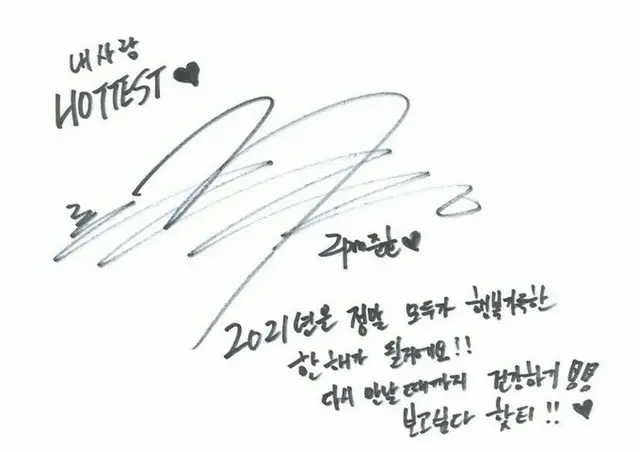 내사랑
HOTTEST ♥
2pm 준호 ♥
2021년은 정말 모두가 행복가득한
한해가 될거에요!!
다시 만날때까지 건강하기
보고싶다 핫티!! ♥